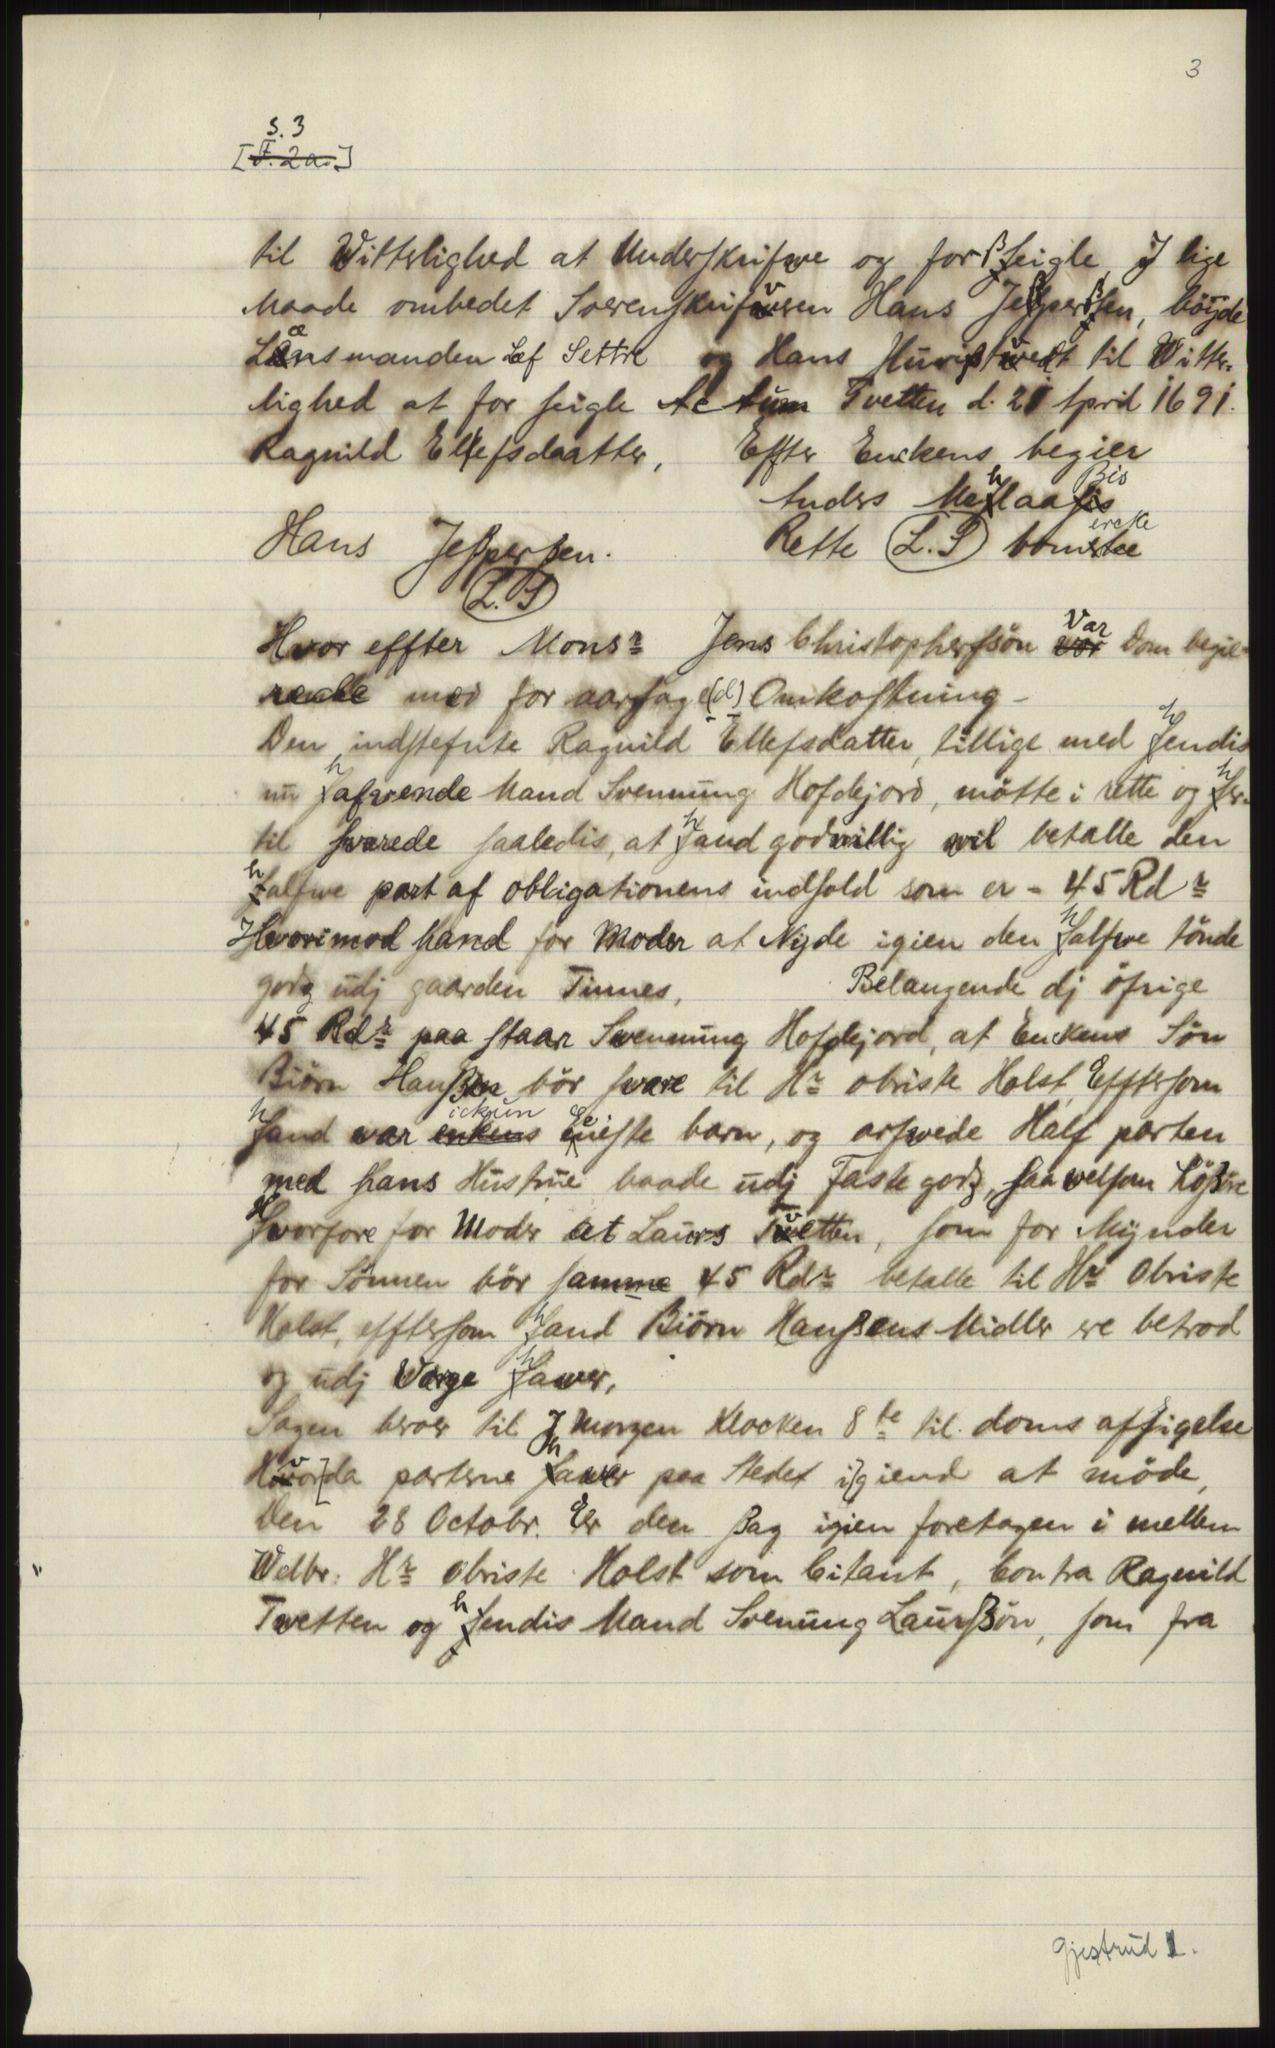 3
S. 3
[F. 2a.]
til Witterlighed at Underskrifwe og forβeigle, J lige
Maade ombedet Sorenskrifveren Hans Jeβperβen, böyde
Lænsmanden Lef Settre og Hans til Witter=
lighed at for seigle Actum Tvetten d. 21 April 1691.
Ragnild Ellefsdaatter, Effter Enckens begier
Anders Mehlaas Bis
Hans Jeβperβen. Rette (L.S) bomercke
(L.S)
Hvor effter Monsr Jens Christophersön Var Dom begie-
rende med for aarsage(d) Omkostning -
Den indstefnte Ragnild Ellefsdatter, tillige med hendis
nu hafwende Mand Svennung Hofdejord, mötte i rette og her-
til svarede saaledis, at hand godwillig wil betalle den
halfwe part af obligationens indhold som er - 45 Rdr
Hvorimod hand for Moder at Nyde igien den halfwe tönde
godz udj gaarden Tinnes, Belangende dj öfrige
45 Rdr paa staar Svennung Hofdejord, at Enckens Søn
Biörn Hanβen bör svare til Hr obriste Holst, Efftersom
hand war ickun eeneste barn, og arfwede Half parten
med hans Hustrue baade udj Faste godz, saa welsom Löβöre
Hvorfore for Moder at Laurs Tvetten, som for Mynder
for Sönnen bör samme 45 Rdr betalle til Hr Obriste
Holst, efftersom hand Biörn Hanβens Midler ere betrod
og udj Værge hawer,
Sagen beroer til J Morgen Klocken 8te til doms affsigelse
Hvor]da parterne hawer paa Stedet i]giend at möde,
Den 28 Octobr. Er den βag igien foretagen i mellem
Welbr: Hr obriste Holst som Citant, Contra Ragnild
Twetten og hendis Mand Svenung Laursβön, som fra
Gjestrud 1.